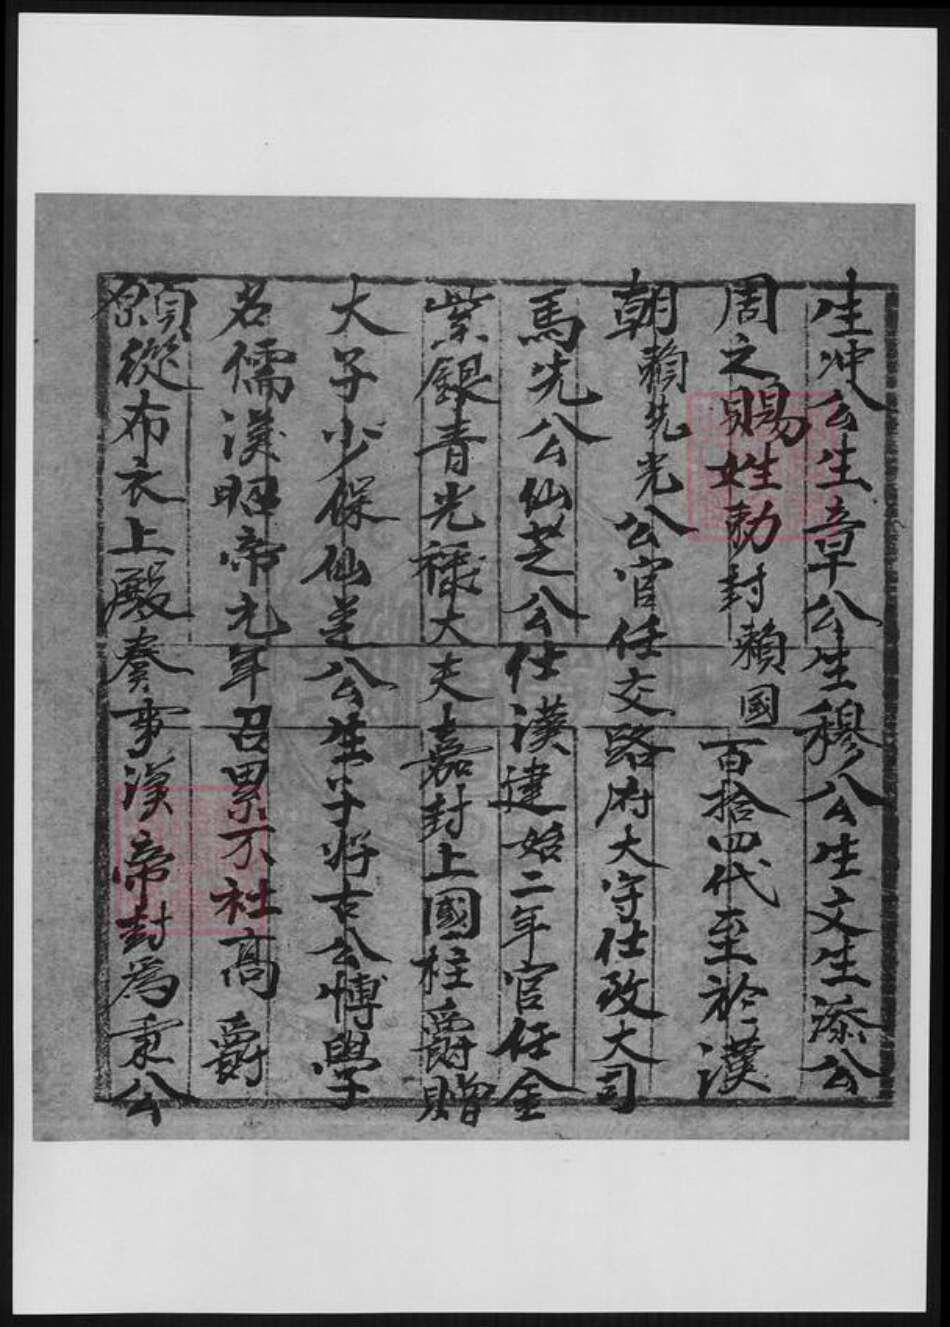 生冲公生章公生穆公生文生添公
周之賜姓勅封賴國百拾四代至於漢
朝賴先光公官任交路府大守仕政大司
馬先公仙芝公仕漢建始二年官任金
紫銀青光祿大夫嘉封上國柱爵贈
大子少保仙芝公生子好古公愽學
名儒漢昭帝元年召累不社高爵
願從布衣上殿奏事漢帝封為秉公